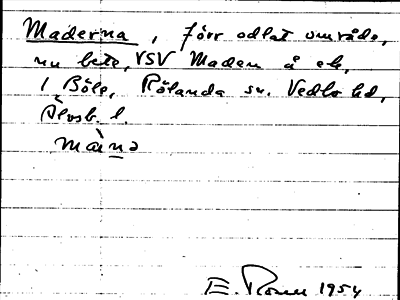 Maderna, förr odlat område,
nu bete, VSV Maden å ek,
1 Böle, Rölanda sn. Vedbo hd,
Älvsb. l.
E. 1954